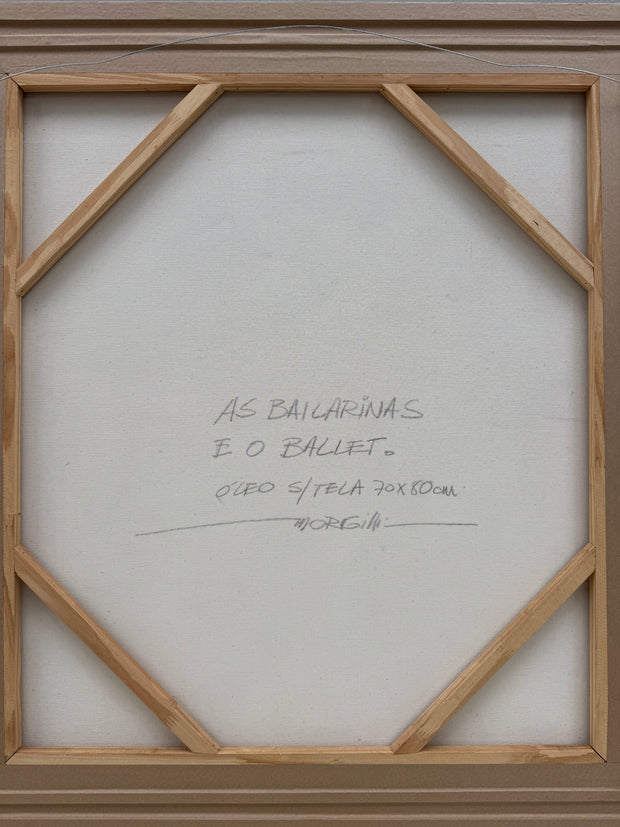 AS BAILARINAS
E O BALLET.
ÓLEO S/TELA 70X80cm.
MORGilli